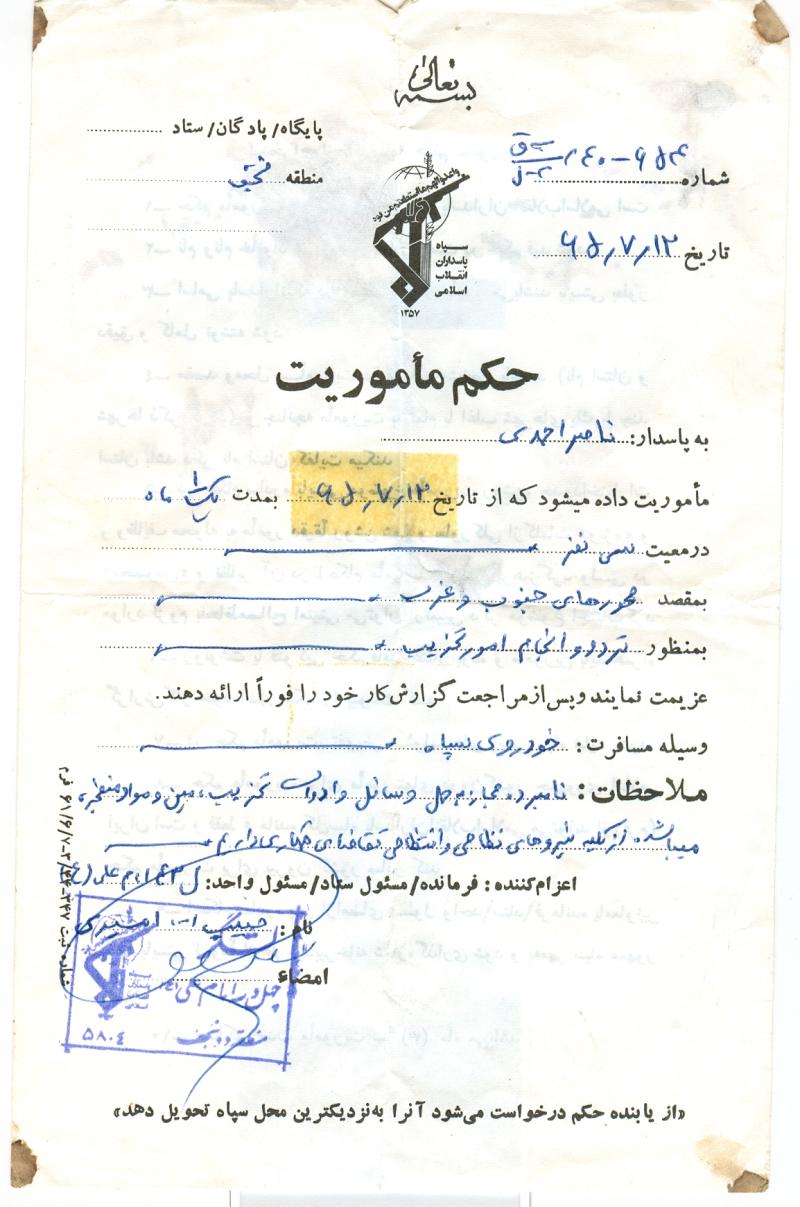 بسمه تعالی
پایگاه/ پادگان/ ستاد
شماره
منطقه
تاریخ ۶۵/۷/۱۲
سپاه
پاسداران
انقلاب
اسلامی
۱۳۵۷
حکم مأموریت
به پاسدار: ناصر احمدی
مأموریت داده میشود که از تاریخ ۶۵/۷/۱۲ بمدت یک ماه
درمعیت سی نفر
بمقصد محورهای جنوب و غرب
بمنظور تردد و انجام امور تخریب
عزیمت نمایند و پس از مراجعت گزارش کار خود را فوراً ارائه دهند.
وسیله مسافرت: خودروی سپاه
ملاحظات: نامبرده مجاز به حمل وسائل و ادوات تخریب، مین و مواد منفجره
میباشد از کلیه نیروهای نظامی و انتظامی تقاضای همکاری داریم
اعزام‌کننده: فرمانده/ مسئول ستاد/ مسئول واحد:
نام:
امضاء
۵۸۰۴
«از یابنده حکم درخواست می‌شود آنرا به نزدیکترین محل سپاه تحویل دهد»